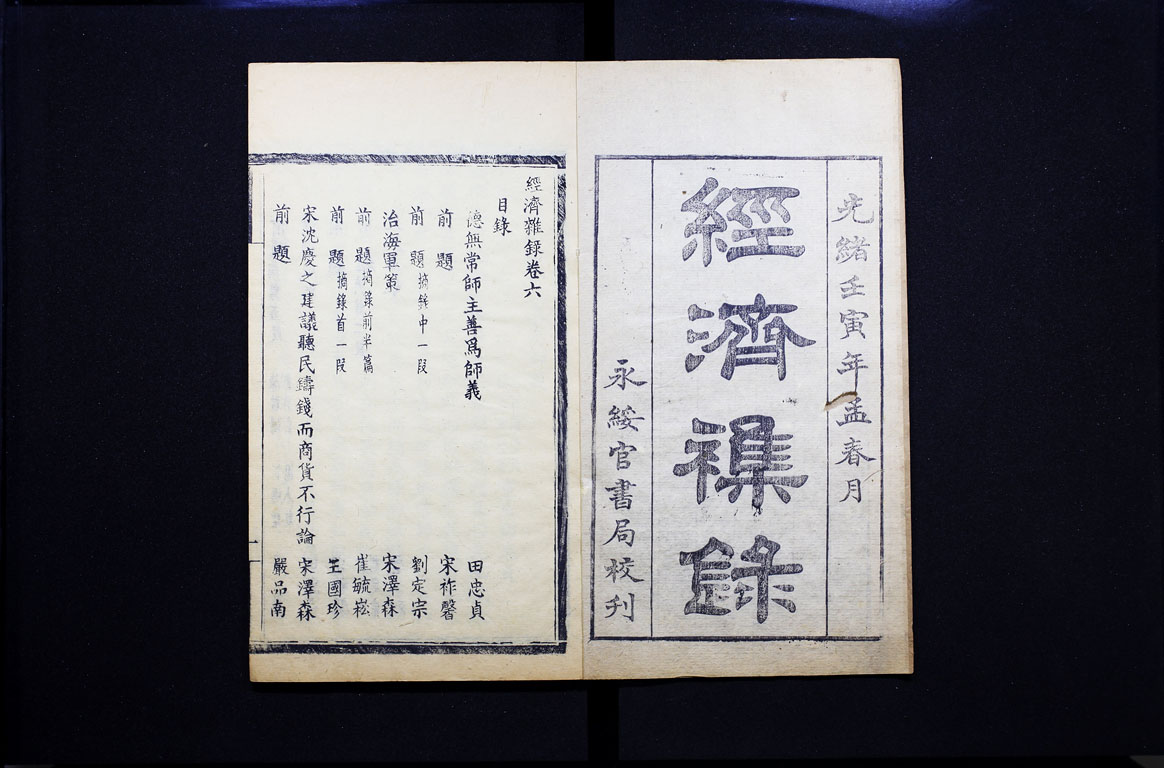 光緒壬寅年孟春月
經濟襍錄
永綏官書局校刋
經濟雜錄卷六
目錄
德無常師主善爲師義 田忠貞
前題 宋祚馨
前題摘錄中一段 劉定宗
治海軍策 宋澤森
前題摘錄前半篇 崔毓崧
前題摘錄首一段 王國珍
宋沈慶之建議聽民鑄錢而商貨不行論 宋澤森
前題 嚴品南